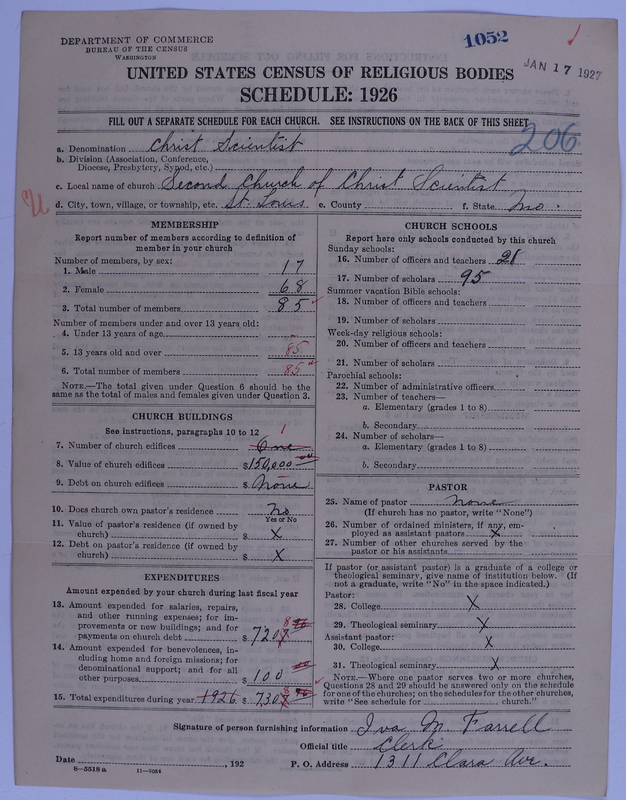 DEPARTMENT OF COMMERCE
BUREAU OF THE CENSUS
WASHINGTON
1052
JAN 17 1927
UNITED STATES CENSUS OF RELIGIOUS BODIES
SCHEDULE: 1926
FILL OUT A SEPARATE SCHEDULE FOR EACH CHURCH. SEE INSTRUCTIONS ON THE BACK OF THIS SHEET
206
a. Denomination Christ Scientist
b. Division (Association, Conference,
Diocese, Presbytery, Synod, etc.)
c. Local name of church Second Church of Christ Scientist
d. City, town, village, or township, etc. St. Louis e. County f. State Mo.
MEMBERSHIP
Report number of members according to definition of
member in your church
Number of members, by sex:
1. Male 17
2. Female 68
3. Total number of members 85
Number of members under and over 13 years old:
4. Under 13 years of age
5. 13 years old and over 85
6. Total number of members 85
NOTE.—The total given under Question 6 should be the
same as the total of males and females given under Question 3.
CHURCH BUILDINGS
See instructions, paragraphs 10 to 12
1
7. Number of church edifices One
8. Value of church edifices $150,000
9. Debt on church edifices $ None
10. Does church own pastor's residence No
Yes or No
11. Value of pastor's residence (if owned by
church) $ X
12. Debt on pastor's residence (if owned by
church) $ X
EXPENDITURES
Amount expended by your church during last fiscal year
13. Amount expended for salaries, repairs,
and other running expenses; for im-
provements or new buildings; and for
payments on church debt $ 7208
14. Amount expended for benevolences, in-
cluding home and foreign missions; for
denominational support; and for all
other purposes $ 100
15. Total expenditures during year 1926 $ 7308
CHURCH SCHOOLS
Report here only schools conducted by this church
Sunday schools:
16. Number of officers and teachers 21
17. Number of scholars 95
Summer vacation Bible schools:
18. Number of officers and teachers
19. Number of scholars
Week-day religious schools:
20. Number of officers and teachers
21. Number of scholars
Parochial schools:
22. Number of administrative officers
23. Number of teachers—
a. Elementary (grades 1 to 8)
b. Secondary
24. Number of scholars—
a. Elementary (grades 1 to 8)
b. Secondary
PASTOR
25. Name of pastor None
(If church has no pastor, write "None")
26. Number of ordained ministers, if any, em-
ployed as assistant pastors X
27. Number of other churches served by the
pastor or his assistants
If pastor (or assistant pastor) is a graduate of a college or
theological seminary, give name of institution below. (If
not a graduate, write "No" in the space indicated.)
Pastor:
28. College X
29. Theological seminary X
Assistant pastor:
30. College X
31. Theological seminary X
NOTE.—Where one pastor serves two or more churches,
Questions 28 and 29 should be answered only on the schedule
for one of the churches; on the schedules for the other churches,
write "See schedule for church."
Signature of person furnishing information Iva M. Farrell
Official title Clerk
Date , 192 P. O. Address 1311 Clara Ave.
8—5518a 11—9054